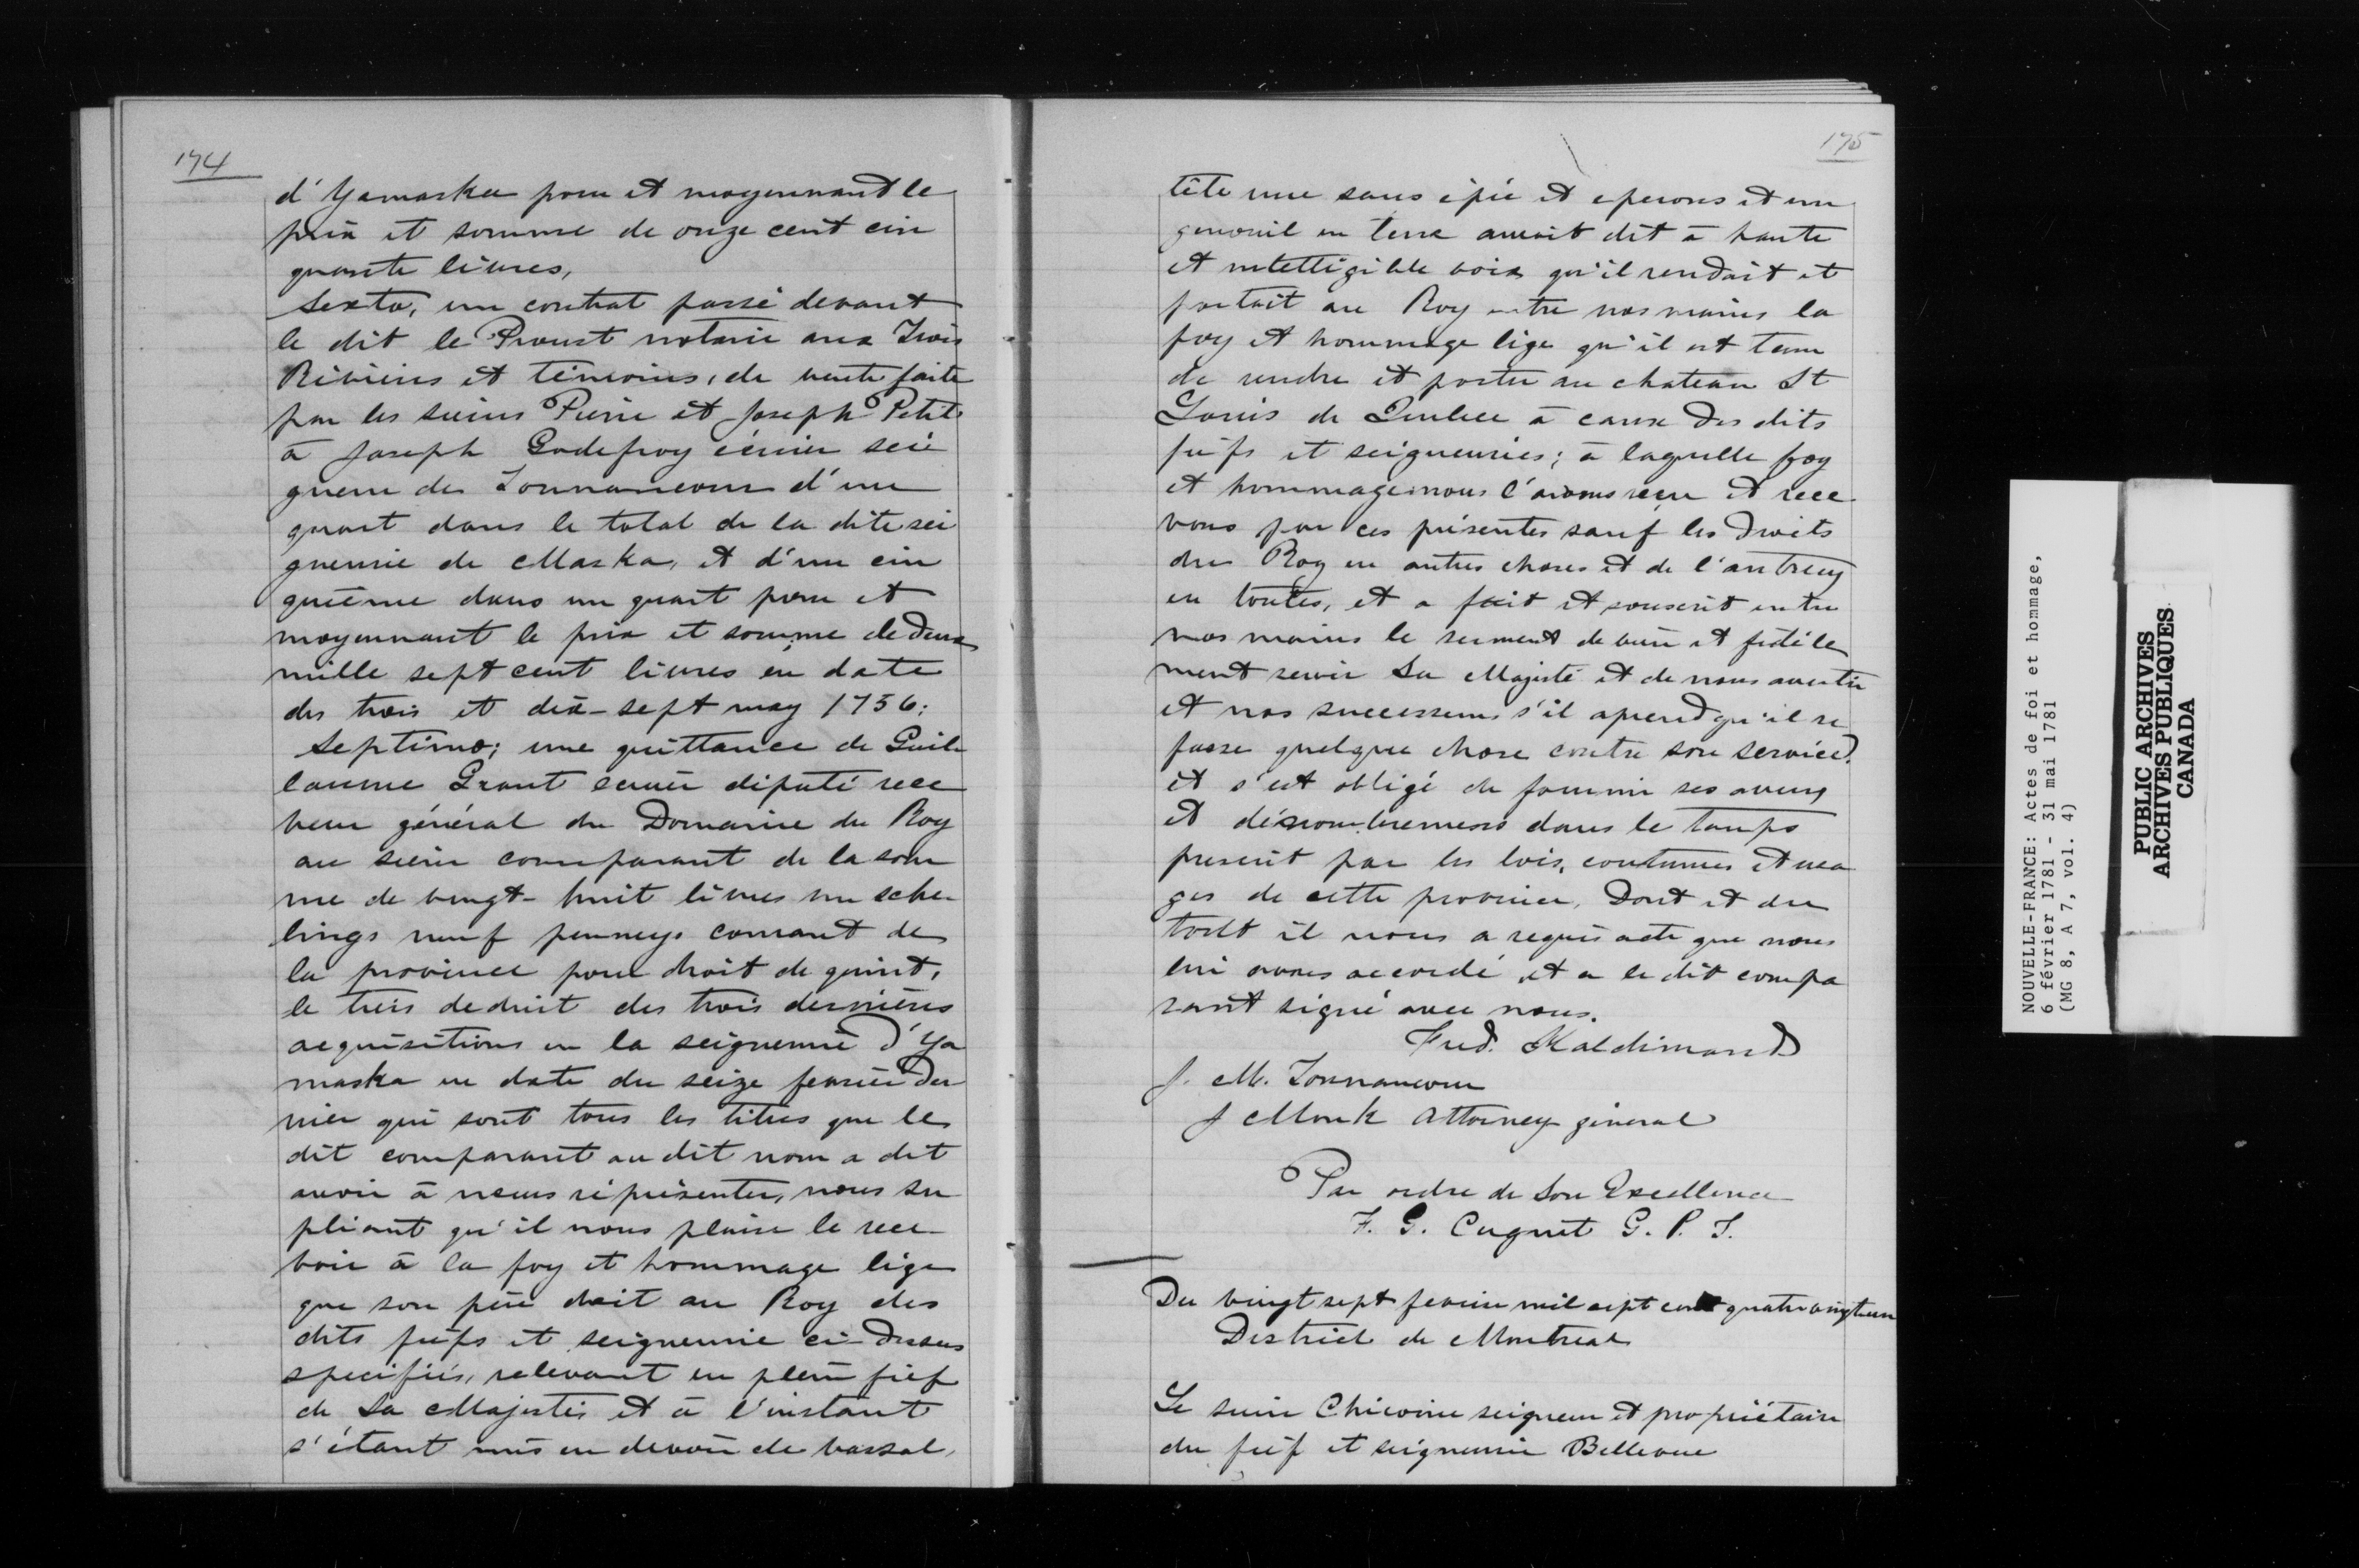 174
d'Yamaska pour et moyennant le
prix et somme de onze cent cin
quante livres,
Sexto, un contrat passé devant
le dit le Proust notaire aux Trois
Rivieres et témoins, de vente faite
par les sieurs Pierre et Joseph Petit
à Joseph Godefroy écuier sei
gneur de Tonnancour d'un
quart dans le total de la dite sei
gneurie de Maska, et d'un cin
quième dans un quart pour et
moyennant le prix et somme de deux
mille sept cent livres en date
des trois et dix-sept may 1756;
Septimo; une quittance de Guil
laume Grant ecuier député rece
veur général du Domaine du Roy
au sieur comparant de la som
me de vingt-huit livres un sche
lings neuf penneys courant de
la province pour droit de quint,
le tiers deduit des trois dernières
acquisitions en la seigneurie d'Ya
maska en date du seize fevrier der
nier qui sont tous les titres que le
dit comparant au dit nom a dit
avoir à nous réprésenter, nous su
pliant qu'il nous plaise le rece
voir à la foy et hommage lige
que son père doit au Roy des
dits fiefs et seigneurie ci-dessus
specifiés, relevant en plein fief
de Sa Majestés et à l'instant
s'étant mis en devoir de vassal,
175
tête nue sans épée et eperons et un
genouil en terre auroit dit à haute
et intelligible voix qu'il rendoit et
portait au Roy entre nos mains la
foy et hommage lige qu'il est tenu
de rendre et porter au chateau St
Louis de Quebec à cause des dits
fiefs et seigneuries; à laquelle foy
et hommage nous l'avons reçu et rece
vons par ces présentes sauf les droits
du Roy en autres choses et de l'autruy
en toutes, et a fait et souscrit entre
nos mains le serment de bien et fidéle
ment servir Sa Majesté et de nous avertir
et nos successeurs s'il aprend qu'il se
fasse quelque chose contre son service.
et s'est obligé de fournir ses aveus
et dénombrements dans le temps
prescrit par les lois, coutumes et usa
ges de cette province, Dont et du
tout il nous a requis acte que nous
lui avons accordé et a le dit compa
rant signé avec nous.
Fred. Haldimand
J. M. Tonnancour
J Monk Attorney géneral
Par ordre de Son Excellence
F. G. Cugnet G. P. T.
Du vingt sept fevrier mil sept cent quatre vingt un
District de Montreal
Le sieur Chicoine seigneur et propriétaire
du fief et seigneurie Bellevue
NOUVELLE-FRANCE: Actes de foi et hommage,
6 février 1781 - 31 mai 1781
(MG 8, A 7, vol. 4)
PUBLIC ARCHIVES
ARCHIVES PUBLIQUES
CANADA